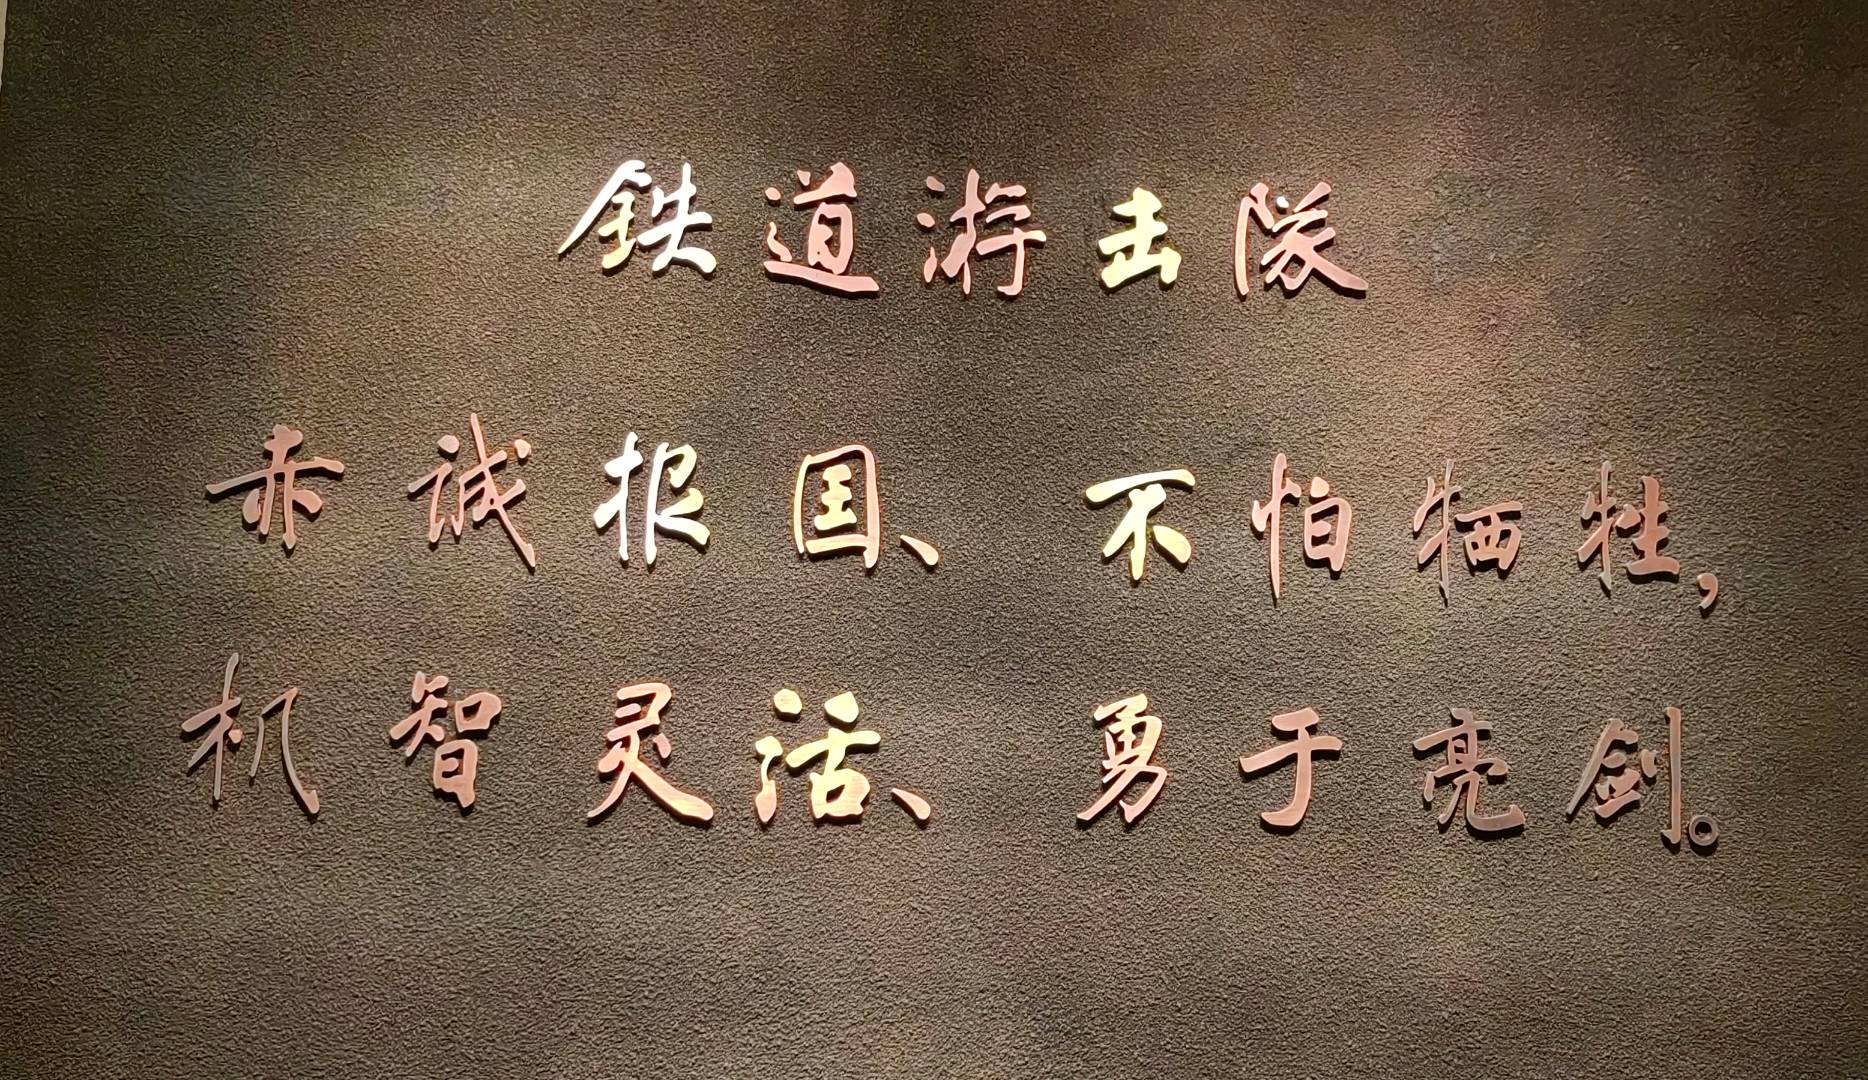 铁道游击队
赤诚报国、不怕牺牲,
机智灵活、勇于亮剑。